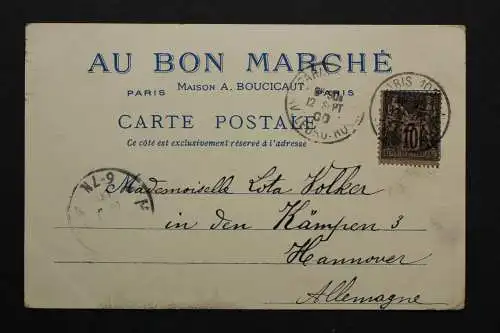 AU BON MARCHÉ
PARIS MAISON A. BOUCICAUT PARIS
CARTE POSTALE
Ce côté est exclusivement réservé à l'adresse
PARIS
12 SEPT
00
PARIS
10
Mademoiselle Lota Volker
in den Kämpen 3
Hannover
Allemagne
6-7N